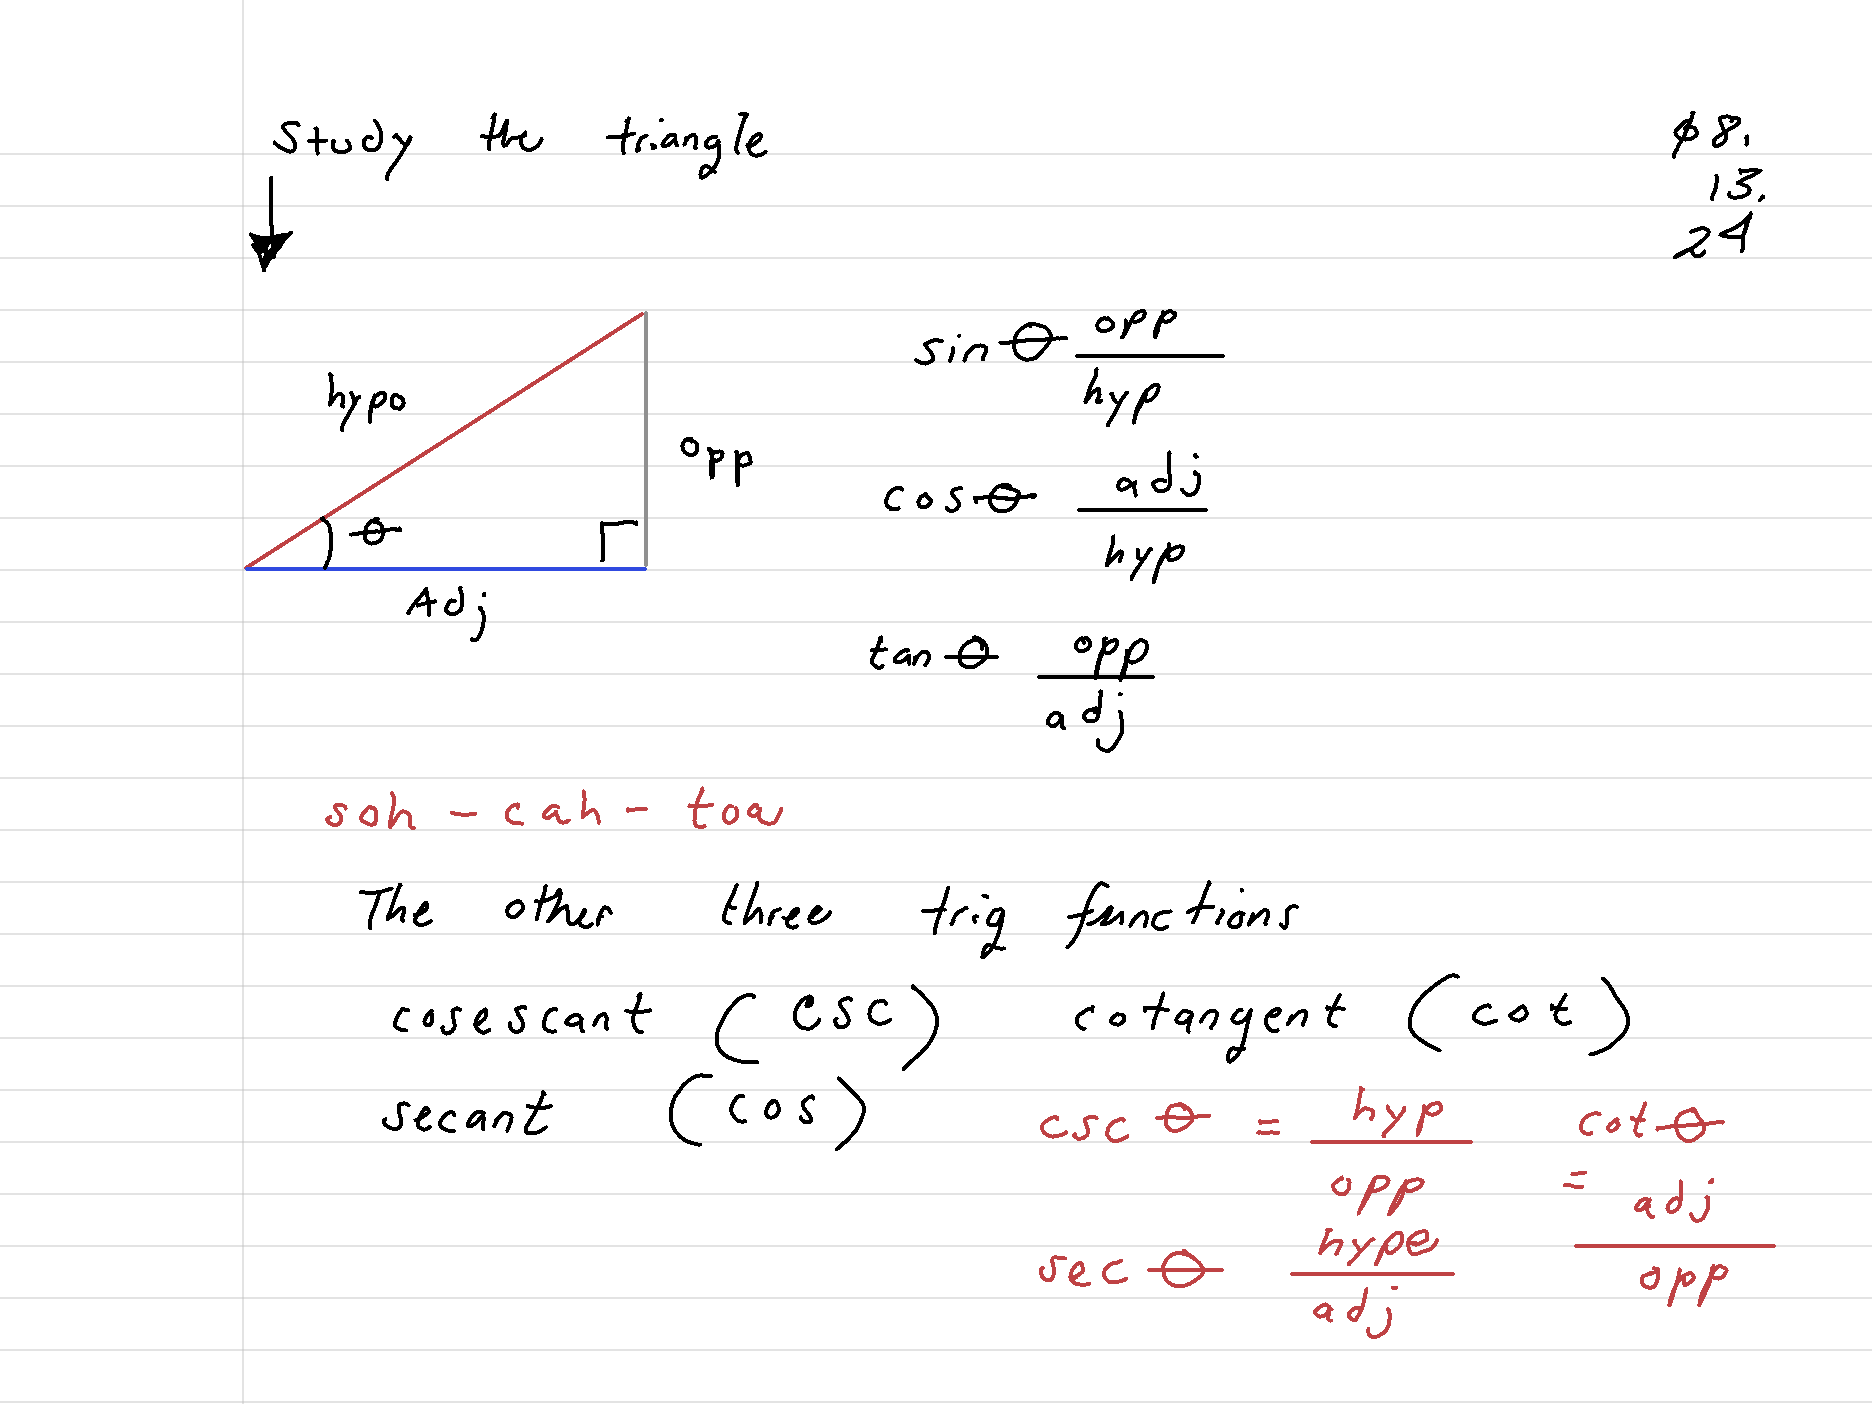 Study the triangle
08.
13.
24
hypo
opp
θ
Adj
sin θ opp
hyp
cos θ adj
hyp
tan θ opp
adj
soh - cah - toa
The other three trig functions
cosescant (csc) cotangent (cot)
secant (cos)
csc θ = hyp
opp
cot θ
= adj
opp
sec θ hype
adj